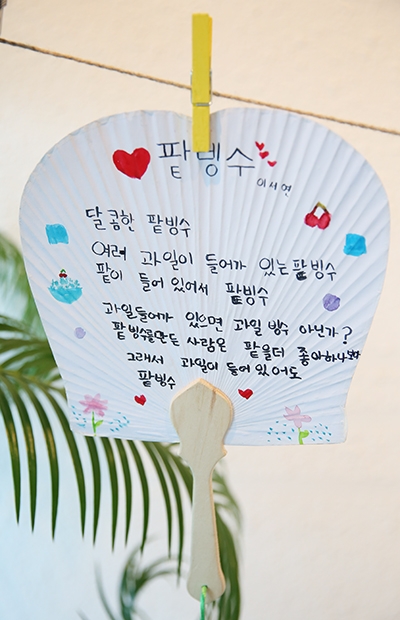 팥빙수
이서연
달콤한 팥빙수
여러 과일이 들어가 있는 팥빙수
팥이 들어 있어서 팥빙수
과일들어가 있으면 과일 빙수 아닌가?
팥빙수를만든 사람은 팥을더 좋아하나보다
그래서 과일이 들어 있어도
팥빙수